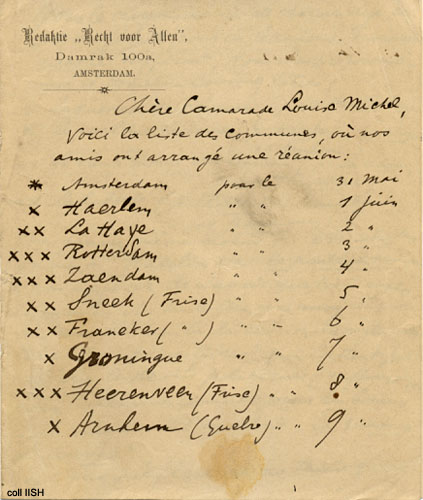 Redaktie „Recht voor Allen",
Damrak 100a,
AMSTERDAM.
Chère Camarade Louise Michel,
Voici la liste des communes, où nos
amis ont arrangé une réunion:
* Amsterdam pour le 31 Mai
x Haerlem " " 1 juin
xx La Haye " " 2 "
xxx Rotterdam " " 3 "
xxx Zaendam " " 4 "
xx Sneek (Frise) " " 5 "
xx Franeker ( " ) " " 6 "
x Groningue " " 7 "
xxx Heerenveen (Frise) " " 8 "
x Arnhem (Guelre) " " 9 "
coll IISH